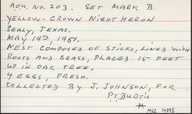 ACQ. NO. 203. SET MARK B.
YELLOW-CROWN NIGHT HERON
SEALY, TEXAS.
MAY 18TH, 1954.
NEST COMPOSED OF STICKS, LINED WITH
ROOTS AND GRASS, PLACED 15 FEET
UP IN OAK TREE.
4 EGGS, FRESH.
COLLECTED BY J. JOHNSON, FOR